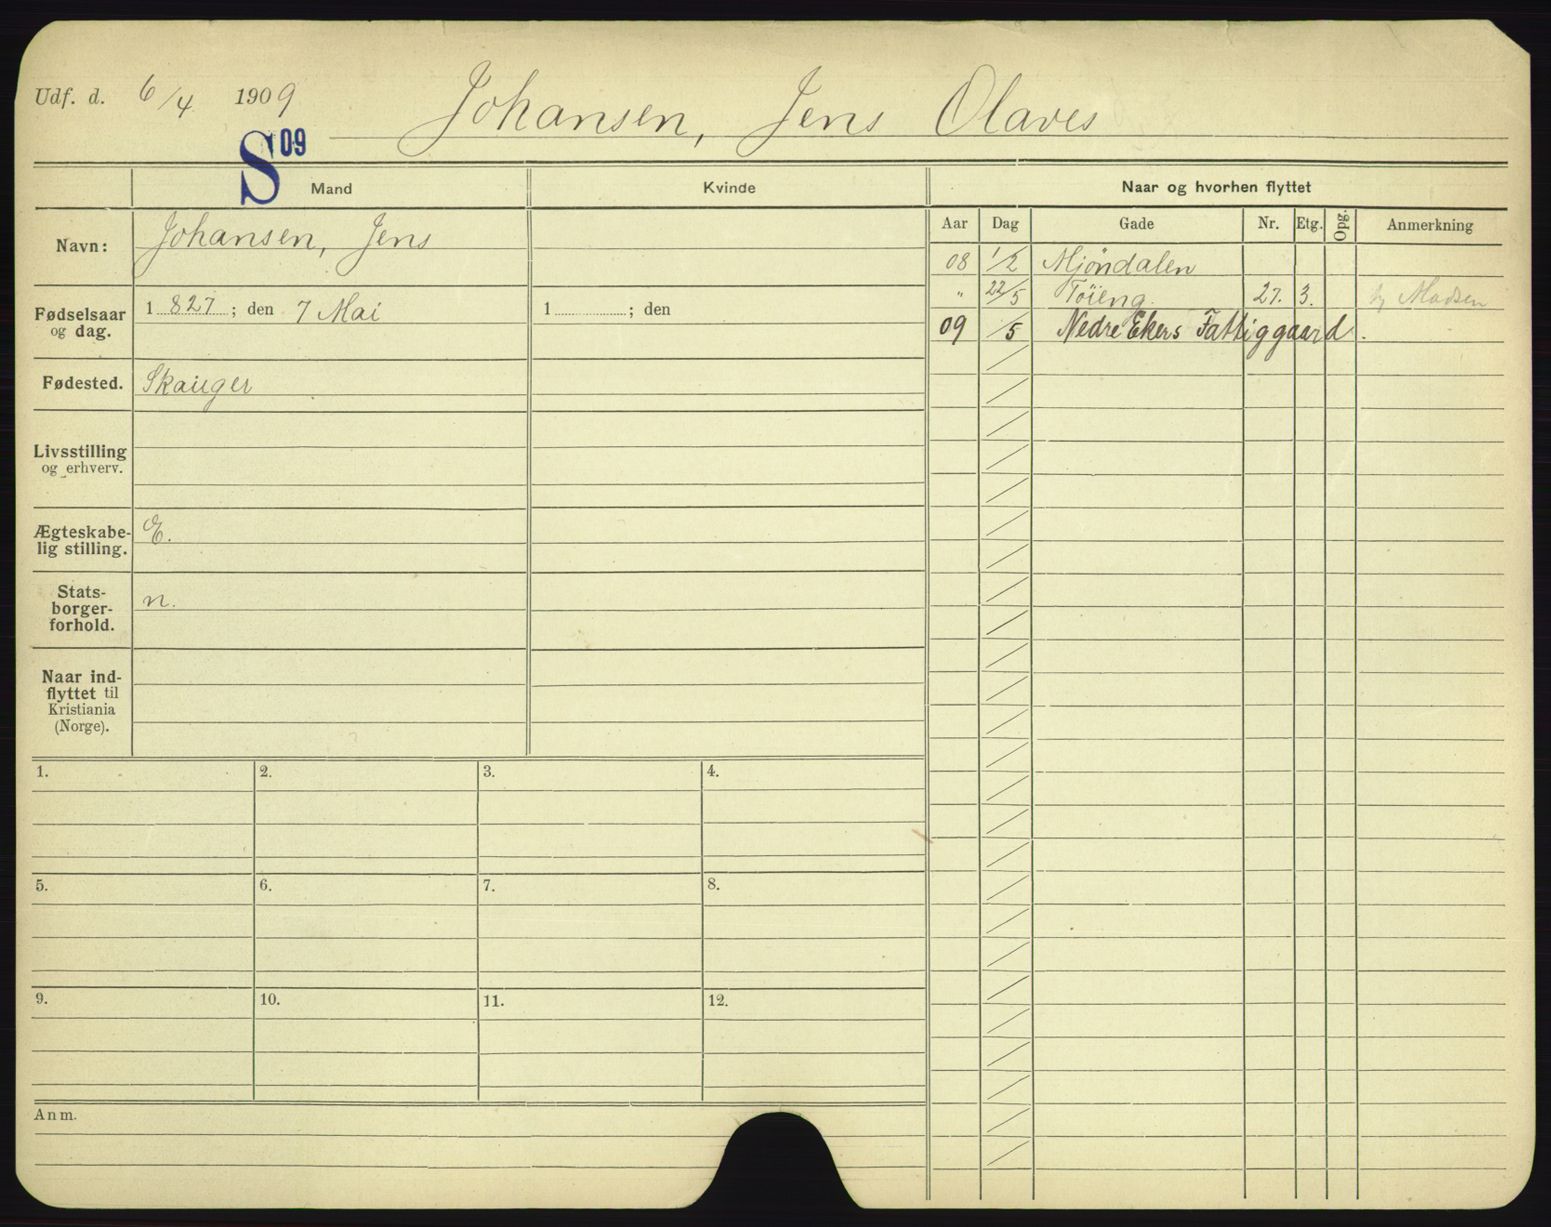 Udf. d. 6/4 1909 Johansen, Jens Olaves
S 09
Mand Kvinde Naar og hvorhen flyttet
Aar Dag Gade Nr. Etg. Opg. Anmerkning
Navn: Johansen, Jens
08 1/2 Mjöndalen
" 22/5 Töieng. 27. 3. Madsen
09 /5 Nedre Ekers Fattiggaard.
Fødselsaar og dag. 1 827 ; den 7 Mai 1 ; den
Fødested. Skauger
Livsstilling
og erhverv.
Ægteskabe-
lig stilling. E.
Stats-
borger-
forhold. n.
Naar ind-
flyttet til
Kristiania
(Norge).
1. 2. 3. 4.
5. 6. 7. 8.
9. 10. 11. 12.
Anm.